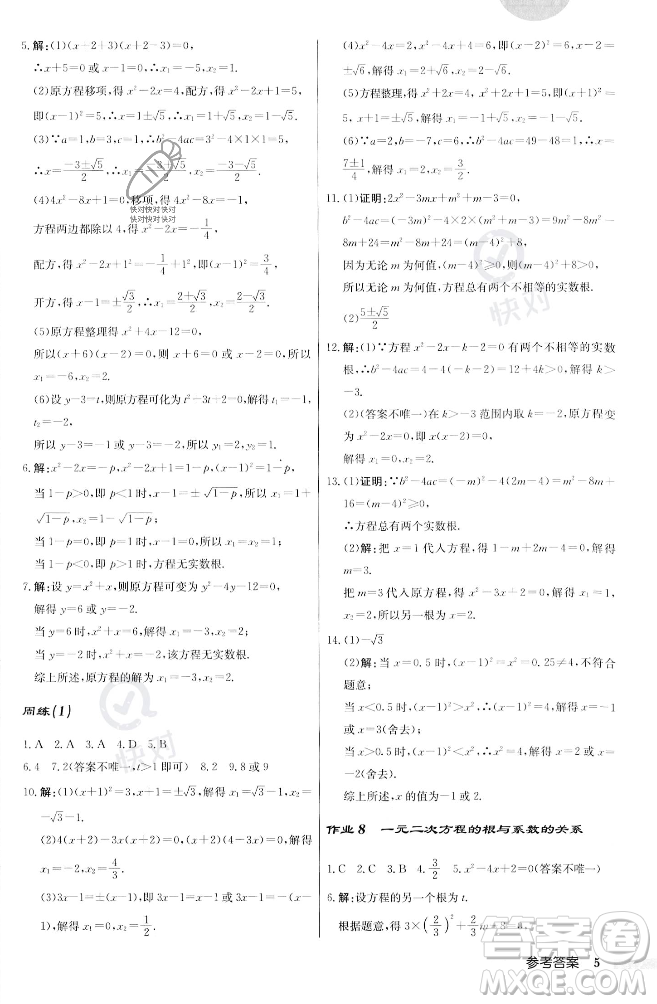 5.解:(1)(x+2+3)(x+2-3)=0,
∴x+5=0或x-1=0,
∴x₁=-5,x₂=1.
(2)原方程移项,得x²-2x=1,配方,得x²-2x+1=2,
即(x-1)²=2,解得x₁=1+√2,x₂=1-√2.
(3)∵a=1,b=3,c=1,∴b²-4ac=3²-4×1×1=5,
∴x=(-3±√5)/2,∴x₁=(-3+√5)/2,x₂=(-3-√5)/2.
(4)4x²-8x+1=0,移项,得4x²-8x=-1,
方程两边都除以4,得x²-2x=-1/4,
配方,得x²-2x+1²=-1/4+1²,即(x-1)²=3/4,
开方,得x-1=±√3/2,∴x₁=(2+√3)/2,x₂=(2-√3)/2.
(5)原方程整理得x²+4x-12=0,
所以(x+6)(x-2)=0,所以x+6=0或x-2=0,所以
x₁=-6,x₂=2.
(6)设y-3=t,则原方程可化为t²-3t+2=0,解得t₁=1,
t₂=2,
所以y-3=1或y-3=2,所以y₁=4,y₂=5.
6.解:x²-2x=-p,x²-2x+1=1-p,(x-1)²=1-p,
当1-p>0,即p<1时,x-1=±√(1-p),x₁=1+√(1-p),
x₂=1-√(1-p);
当1-p=0,即p=1时,x-1=0,x₁=x₂=1;
当1-p<0,即p>1时,方程无实数根.
7.解:设y=x²+x,则原方程可变为y²-4y-12=0,
解得y=6或y=-2.
当y=6时,x²+x=6,解得x₁=-3,x₂=2;
当y=-2时,x²+x=-2,该方程无实数根.
综上所述,原方程的解为x₁=-3,x₂=2.
周练(1)
1.A 2.A 3.A 4.D 5.B
6.4 7.2(答案不唯一,t>1即可) 8.2 9.8或9
10.解:(1)(x+1)²=3,x+1=±√3,解得x₁=√3-1,x₂=
-√3-1.
(2)4(x-2)(x+2)+3(x-2)=0,(x-2)(4x+8+
3)=0,
(3)3x(x-1)+(x-1)=0,(x-1)(3x+1)=0,x-
1=0或3x+1=0,
(4)x²-4x+4=6+4,即(x-2)²=10,∴x-2=
(5)方程整理,得x²-2x=4,x²-2x+1=4+1,
即(x-1)²=5,∴x-1=±√5,解得x₁=1+√5,x₂=1-√5.
(6)∵a=2,b=-7,c=6,∴b²-4ac=49-48=1,∴x=
(7±1)/4,解得x₁=2,x₂=3/2.
11.(1)证明:2x²-3mx+m²+m-3=0,
因为无论m为何值,(m-4)²≥0,所以(m-4)²+8>0,
所以无论m为何值,方程总有两个不相等的实数根.
(2)(5±√5)/2
12.解:(1)∵方程x²-2x-k-2=0有两个不相等的实数
根,∴b²-4ac=4-4(-k-2)=12+4k>0,解得k>
-3.
(2)(答案不唯一)在k>-3范围内取k=-2,原方程变
为x²-2x=0,
解得x₁=0,x₂=2.
13.(1)证明:b²-4ac=(-m)²-4(2m-4)=m²-8m
+16=(m-4)²≥0,
∴方程总有两个实数根.
(2)解:把x=1代入方程得1-m+2m-4=0,解得
m=3.
把m=3代入原方程,得x²-3x+2=0,解得x₁=1,
x₂=2,所以另一根为x=2.
14.(1)-√3
(2)解:当x=0.5时,(x-1)²=x²=0.25≠4,不符合
题意;
当x<0.5时,(x-1)²>x²,则(x-1)²=4,解得x₁=-1,
x₂=3(舍去);
当x>0.5时,(x-1)²<x²,则x²=4,解得x₁=2,x₂=
-2(舍去).
综上所述,x的值为-1或2.
作业8 一元二次方程的根与系数的关系
1.C 2.C 3.A 4.3/2 5.x²-4x+2=0(答案不唯一)
6.解:设方程的另一个根为t.
根据题意,得3×(2/3)²+2/3m-8=0,
参考答案 5
快对快对快对
快对快对快对
快对
快对
答案圈
MXQE.COM